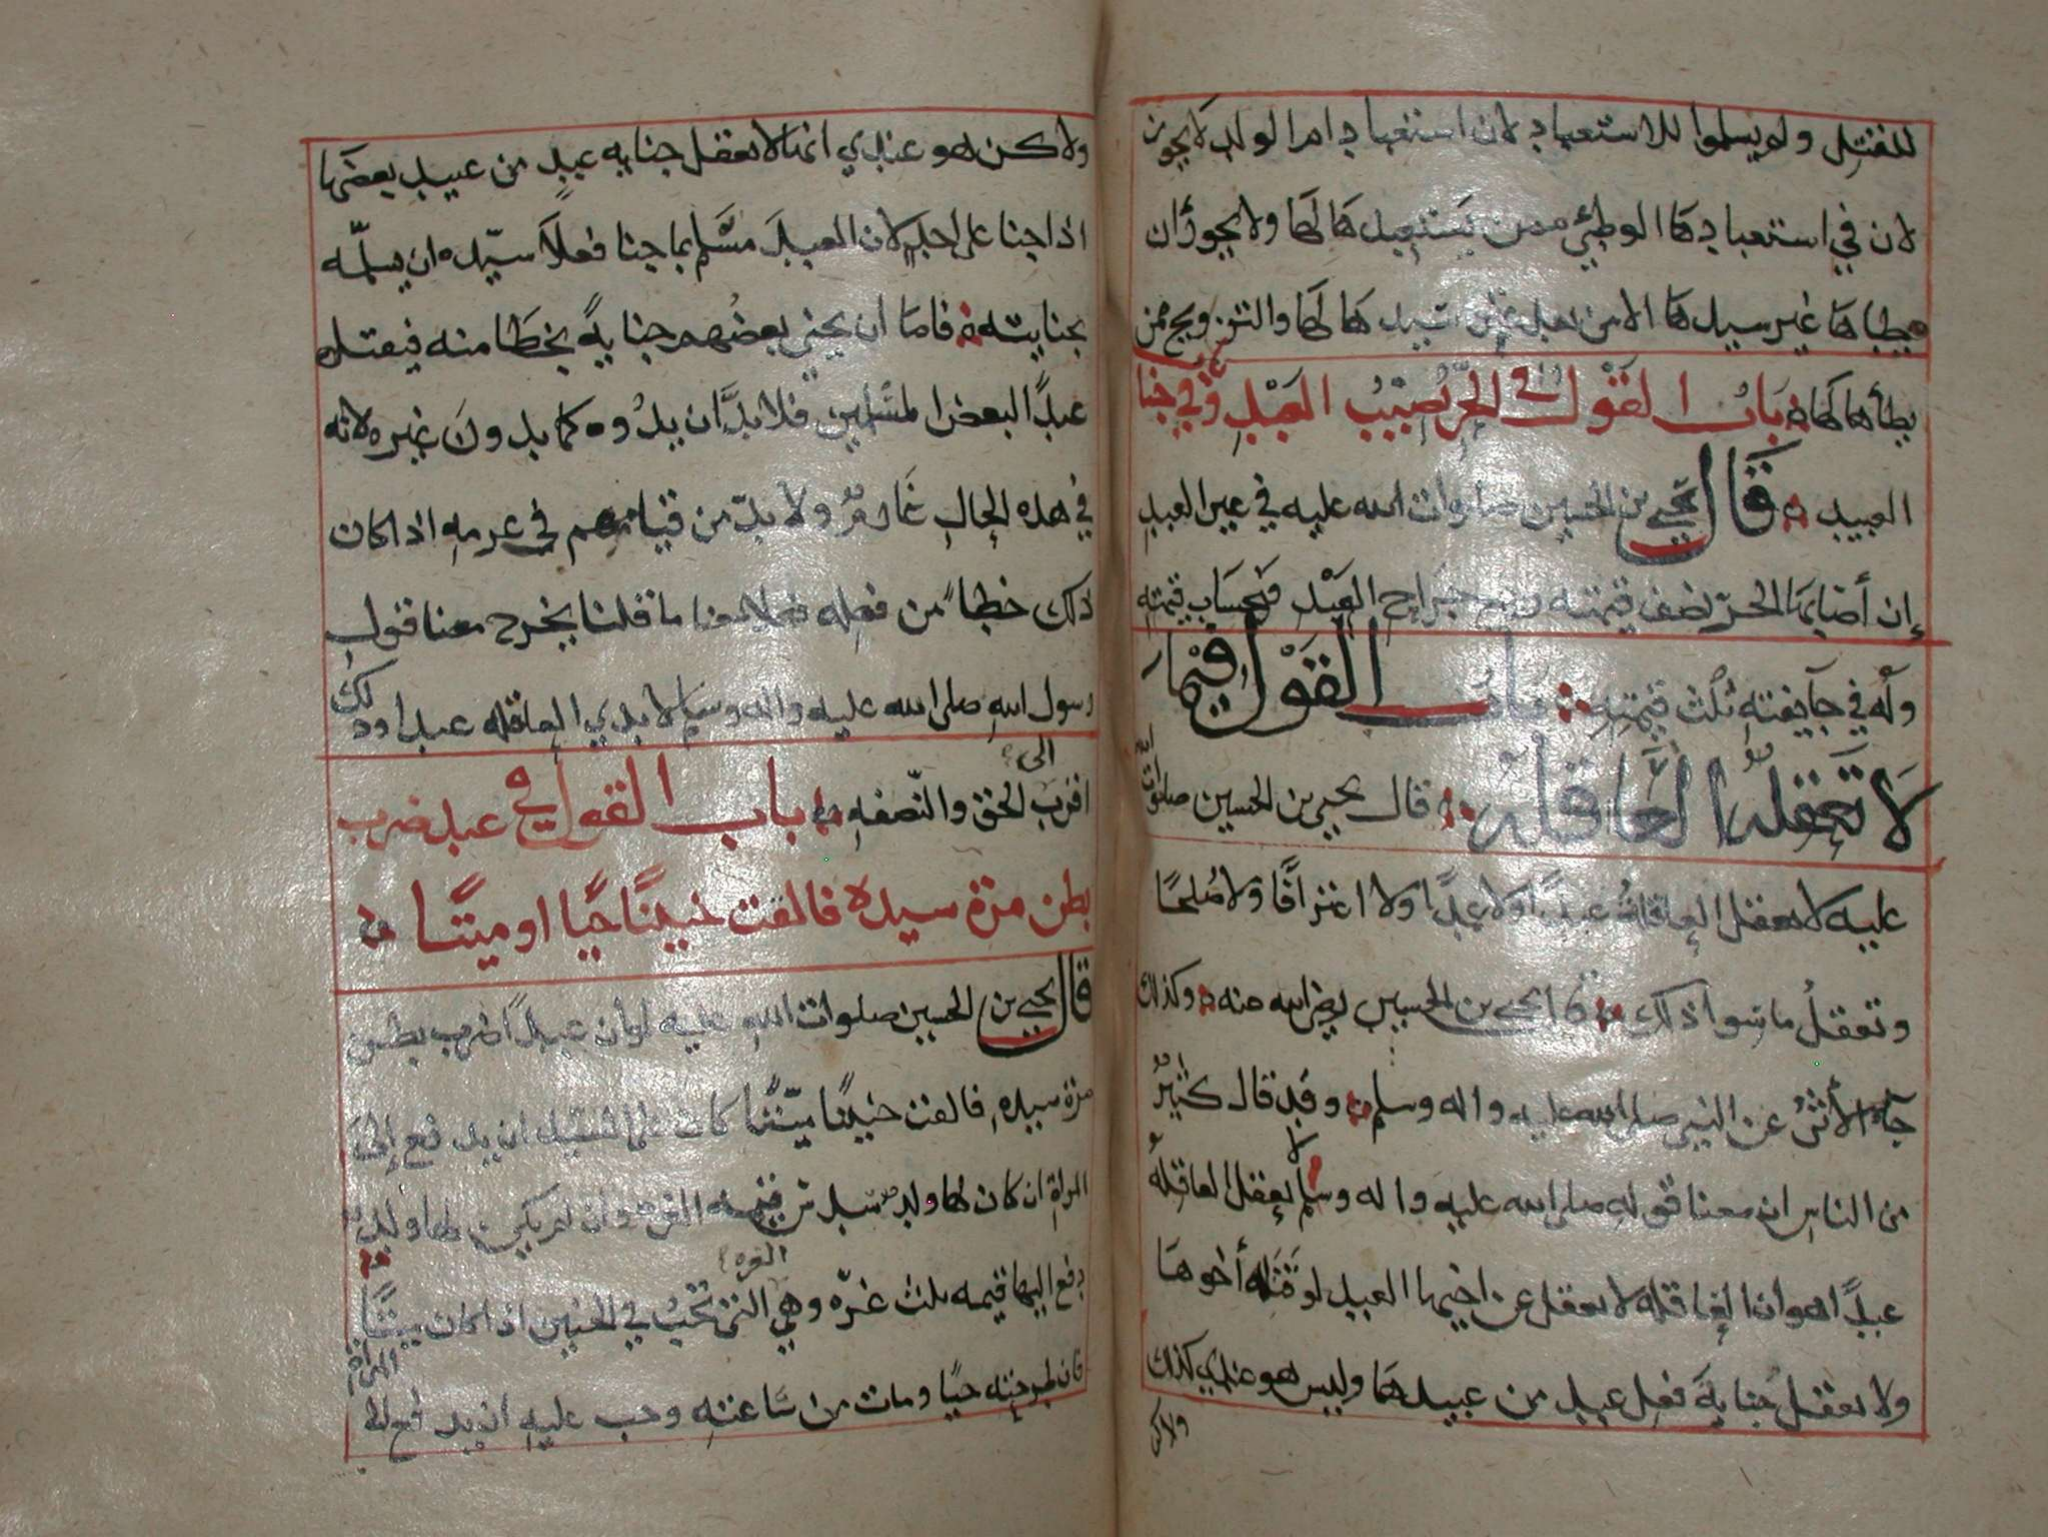 للقتل ولم يسلموا للاستعباد لان استعباد ام الولد لا يجوز
لان في استعبادها الوطئ ممن يستعبدها لها ولا يجوز ان
يطاها غير سيدها الا من بعد عتق سيدها لها والتزويج ممن
يطأها لها باب القول في الحر يصيب العبد وفي جنا
العبيد قال يحيى بن الحسين صلوات الله عليه في عين العبد
إن أصابها الحر نصف قيمته وجميع جراح العبد فبحساب قيمته
وله في جايفته ثلث قيمته باب القول فيما
لا تعقله العاقله قال يحيى بن الحسين صلوات الله
عليه لا تعقل العاقلة عبدا ولا عمدا ولا اعترافا ولا صلحا
وتعقل ما سوا ذلك قال يحيى بن الحسين رضي الله عنه وكذلك
جآء الأثر عن النبي صلى الله عليه واله وسلم وقد قال كثير
من الناس ان معنا قوله صلى الله عليه واله وسلم لا يعقل العاقلة
عبدا هو ان العاقله لا تعقل عن اخيها العبد لو قتله أخوها
ولا تعقل جناية فعل عبد من عبيدها وليس هو عندي كذلك
ولاكن
ولاكن هو عندي انها لا تعقل جنايه عبد من عبيد بعضها
اذا جنا على احد لان العبد مسلم بما جنا فعلا سيده ان يسلمه
بجنايته فاما ان يجني بعضهم جناية بخطا منه فيقتل
عبدا لبعض المسلمين فلا بد ان يدوه كما يدون غيره لانه
في هذه الحال غارم ولا بد من قيامهم في غرمه اذا كان
ذلك خطا من فعله فعلا معنا ما قلنا يخرج معنا قول
رسول الله صلى الله عليه واله وسلم لا يدي العاقله عبدا وذلك
اقرب الى الحق والنصفه باب القول في عبد ضرب
بطن مرة سيده فالقت جنينا حيا او ميتا
قال يحيى بن الحسين صلوات الله عليه لو أن عبدا ضرب بطن
مرة سيده فالقت جنينا ميتا كان على السيد ان يدفع إلى
المراة ان كان لها ولد سدس قيمه الغره وان لم يكن لها ولد
دفع اليها قيمه ثلث غره وهي الغره التي تجب في الجنين اذا كان ميتا
فان طرحته حيا ومات من ساعته وجب عليه أن يدفع الى المراة